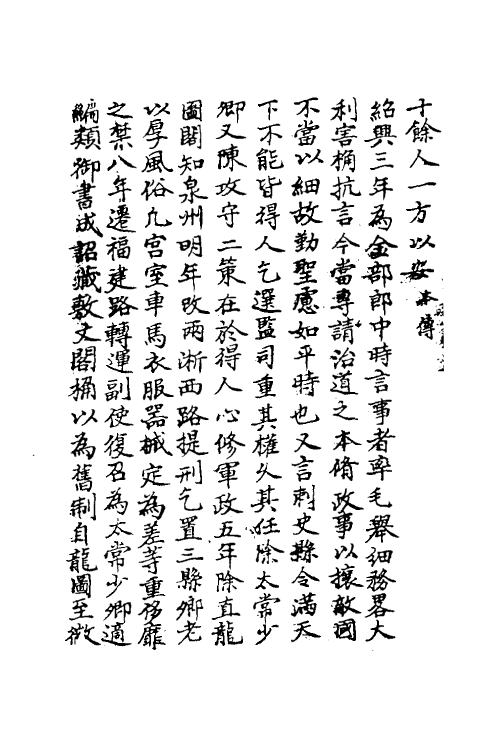 十餘人一方以安本傳
紹興三年為金部郎中時言事者率毛舉細務畧大
利害桷抗言今當專請治道之本脩政事以攘敵國
不當以細故勤聖慮如平時也又言刺史縣令滿天
下不能皆得人乞選監司重其權久其任除太常少
卿又陳攻守二策在於得人心修軍政五年除直龍
圖閣知泉州明年改兩浙西路提刑乞置三縣鄉老
以厚風俗凢宮室車馬衣服器械定為差等重侈靡
之禁八年遷福建路轉運副使復召為太常少卿適
編類御書成詔藏敷文閣桷以為舊制自龍圖至徽